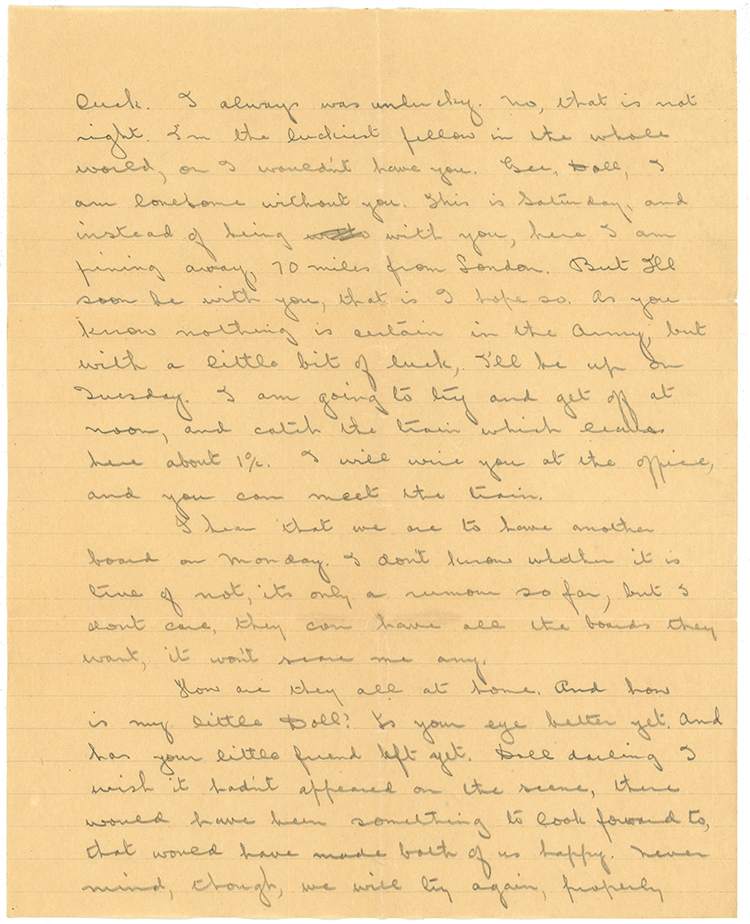 luck. I always was unlucky. No, that is not
right. I'm the luckiest fellow in the whole
world, or I wouldn't have you. Gee, Doll, I
am lonesome without you. This is Saturday, and
instead of being with you, here I am
pining away, 70 miles from London. But I'll
soon be with you, that is I hope so. As you
know nothing is certain in the Army, but
with a little bit of luck, I'll be up on
Tuesday. I am going to try and get off at
noon, and catch the train which leaves
here about 1 . I will wire you at the office,
and you can meet the train.
I hear that we are to have another
board on Monday. I don't know whether it is
true of not, its only a rumour so far, but I
dont care, they can have all the boards they
want, it won't scare me any.
How are they all at home. And how
is my little Doll? Is your eye better yet. And
has your little friend left yet. Doll darling I
wish it hadn't appeared on the scene, there
would have been something to look forward to,
that would have made both of us happy. Never
mind, though, we will try again, properly